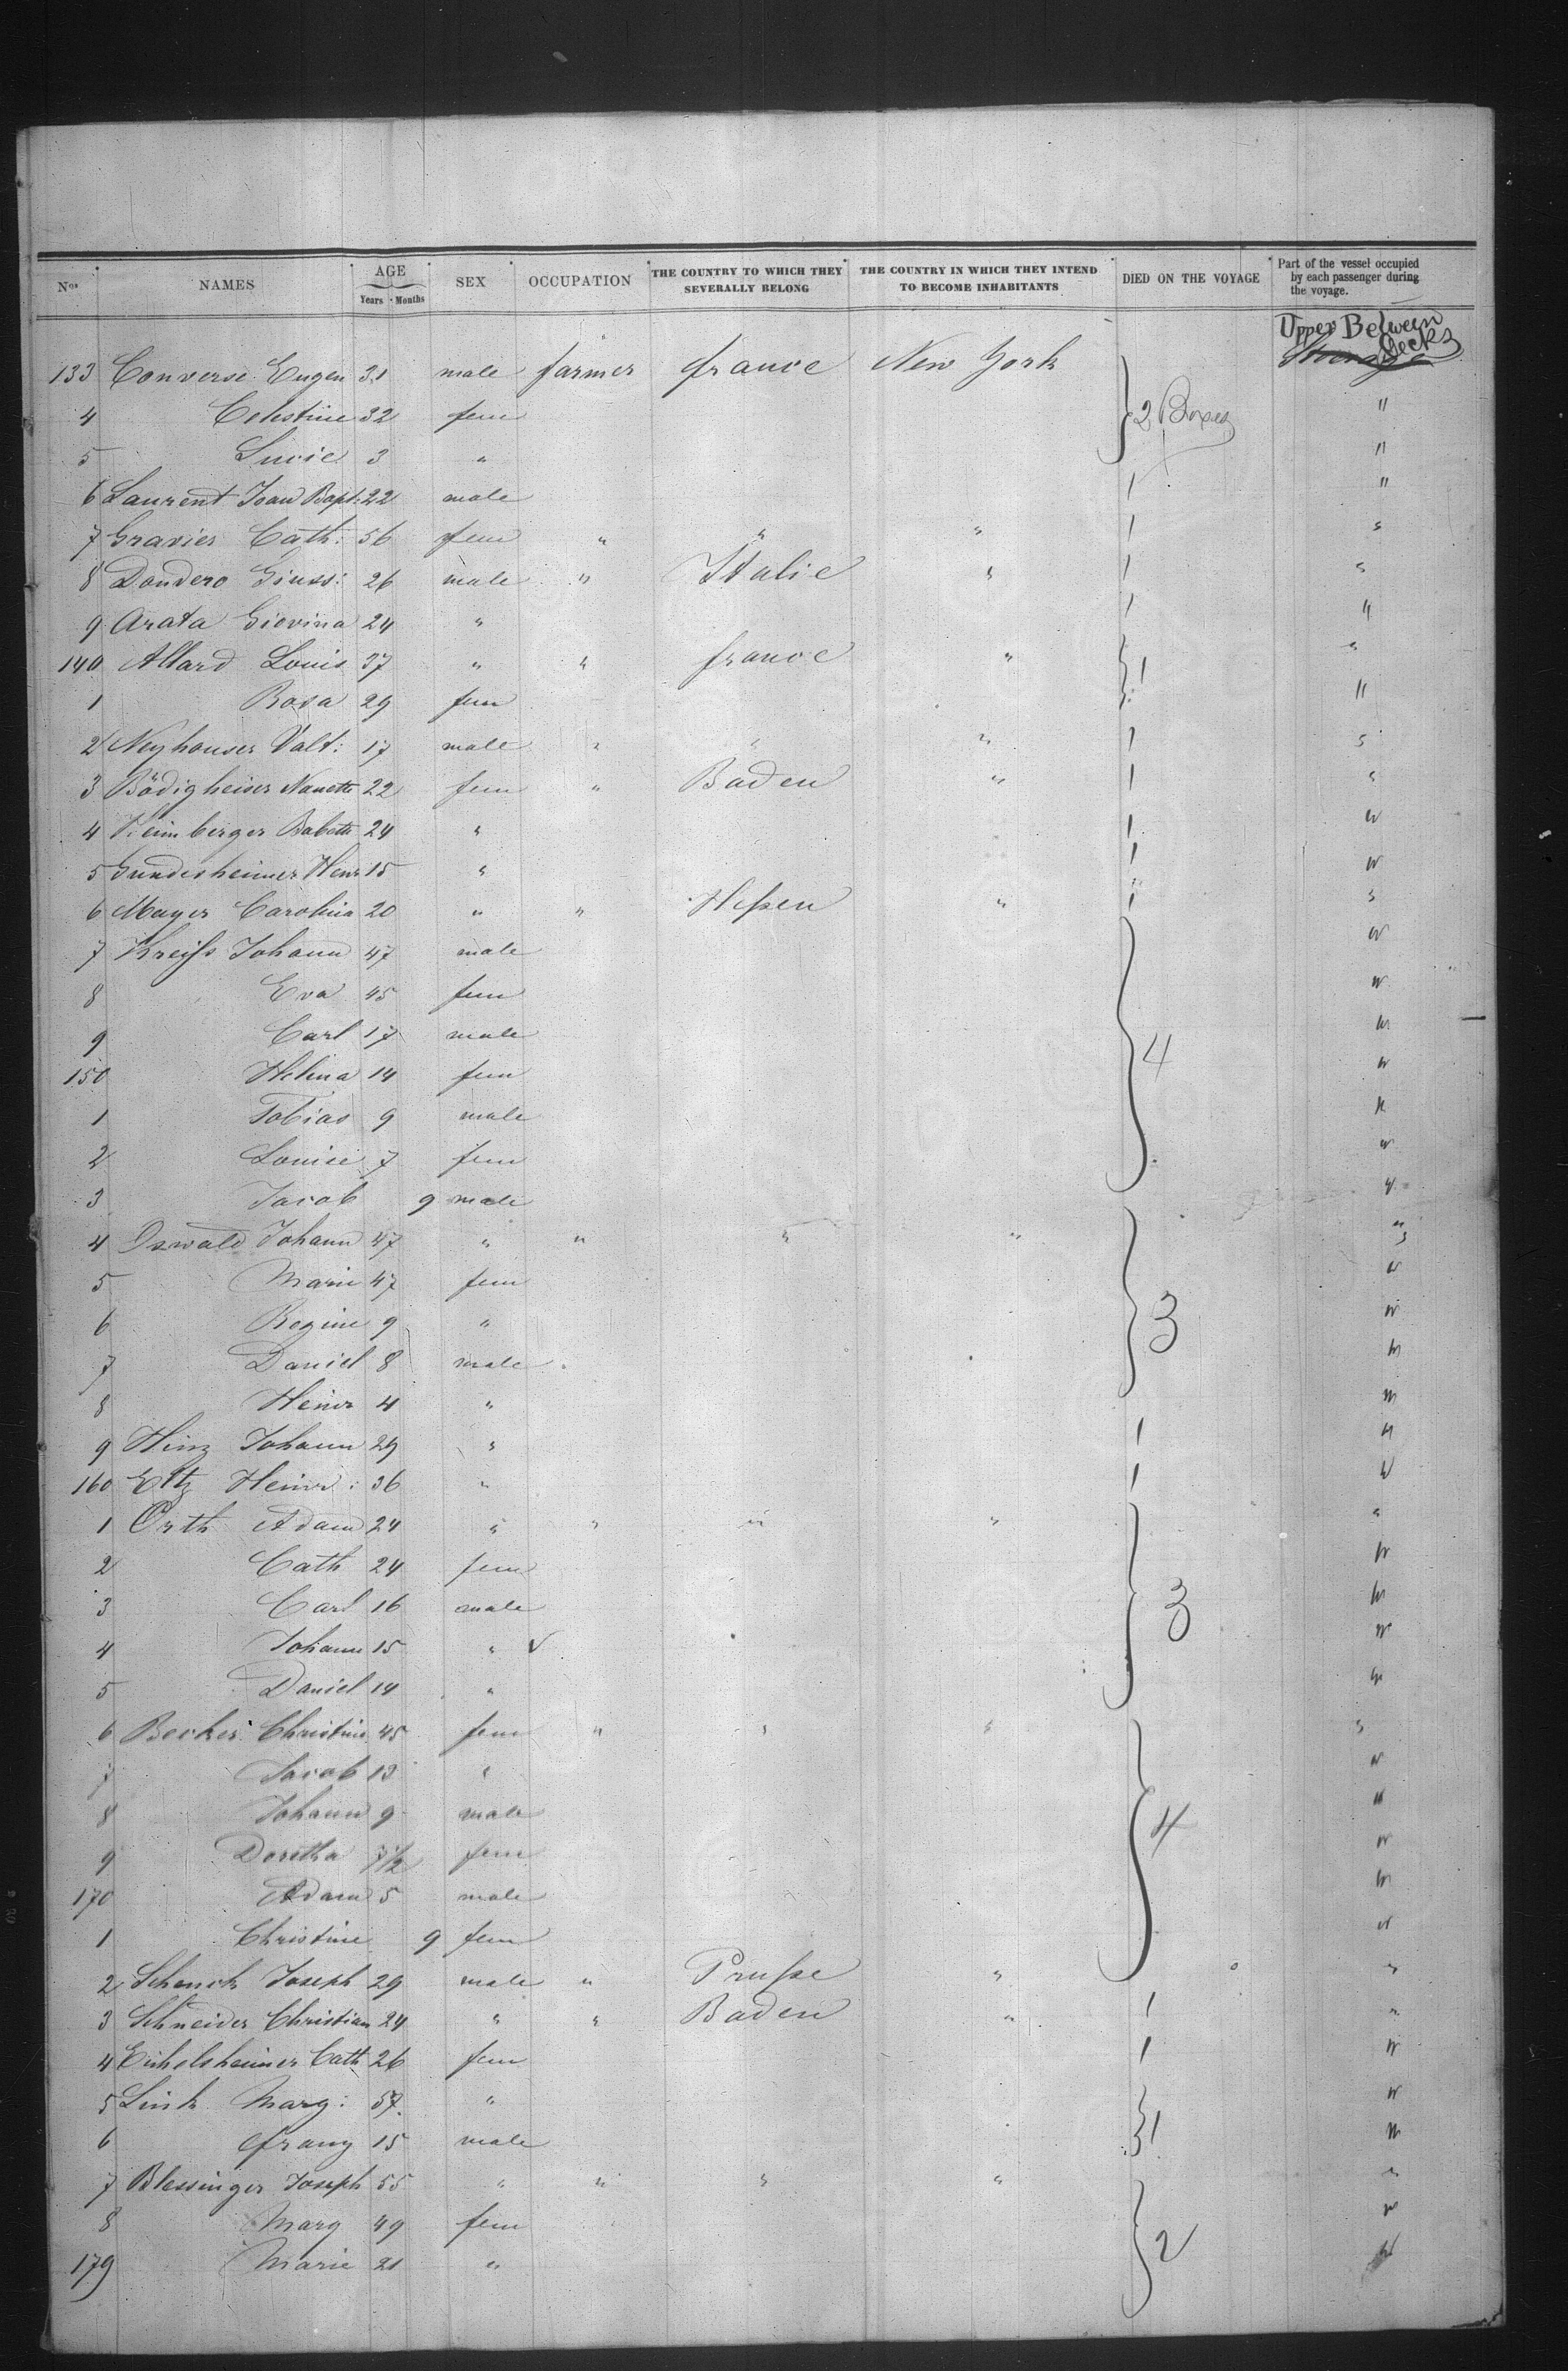 Nos NAMES AGE Years Months SEX OCCUPATION THE COUNTRY TO WHICH THEY SEVERALLY BELONG THE COUNTRY IN WHICH THEY INTEND TO BECOME INHABITANTS DIED ON THE VOYAGE Part of the vessel occupied by each passenger during the voyage.
Upper Between Decks
133 Converse Eugen 31 male farmer france New York
4 Celestine 32 fem 2 Boxes "
5 Lucie 3 " "
6 Laurent Jean Bapt: 22 male 1 "
7 Gravier Cath: 56 fem " " " 1 "
8 Dondero Giuss: 26 male " Italie " 1 "
9 Arata Giovina 24 " 1 "
140 Allard Louis 37 " " france " 1 "
1 Rosa 29 fem "
2 Neyhouser Valt: 17 male " " " 1 "
3 Bödigheimer Nanette 22 fem " Baden " 1 "
4 Heimberger Babette 24 " 1 "
5 Gundesheimer Henr 15 " 1 "
6 Mayer Carolina 20 " " Heßen " 1 "
7 Kreiss Johann 47 male "
8 Eva 45 fem "
9 Carl 17 male 4 "
150 Helina 14 fem "
1 Tobias 9 male "
2 Louise 7 fem "
3 Jacob 9 male "
4 Oswald Johann 47 " " " " "
5 Marie 47 fem "
6 Regine 9 " 3 "
7 Daniel 8 male "
8 Heinr 4 " "
9 Hinz Johann 29 " 1 "
160 Eltz Heinr: 36 " 1 "
1 Orth Adam 24 " " " " "
2 Cath 24 fem "
3 Carl 16 male 3 "
4 Johann 15 " "
5 Daniel 14 " "
6 Becker Christine 45 fem " " " "
7 Jacob 13 " "
8 Johann 9 male 4 "
9 Doretha 7½ fem "
170 Adam 5 male "
1 Christine 9 fem "
2 Schenck Joseph 29 male " Pruße " "
3 Schneider Christian 24 " " Baden " 1 "
4 Eichelsheimer Cath 26 fem 1 "
5 Link Marg: 57 " "
6 franz 15 male 1 "
7 Blessinger Joseph 55 " " " " "
8 Marg 49 fem 2 "
179 Marie 21 " "